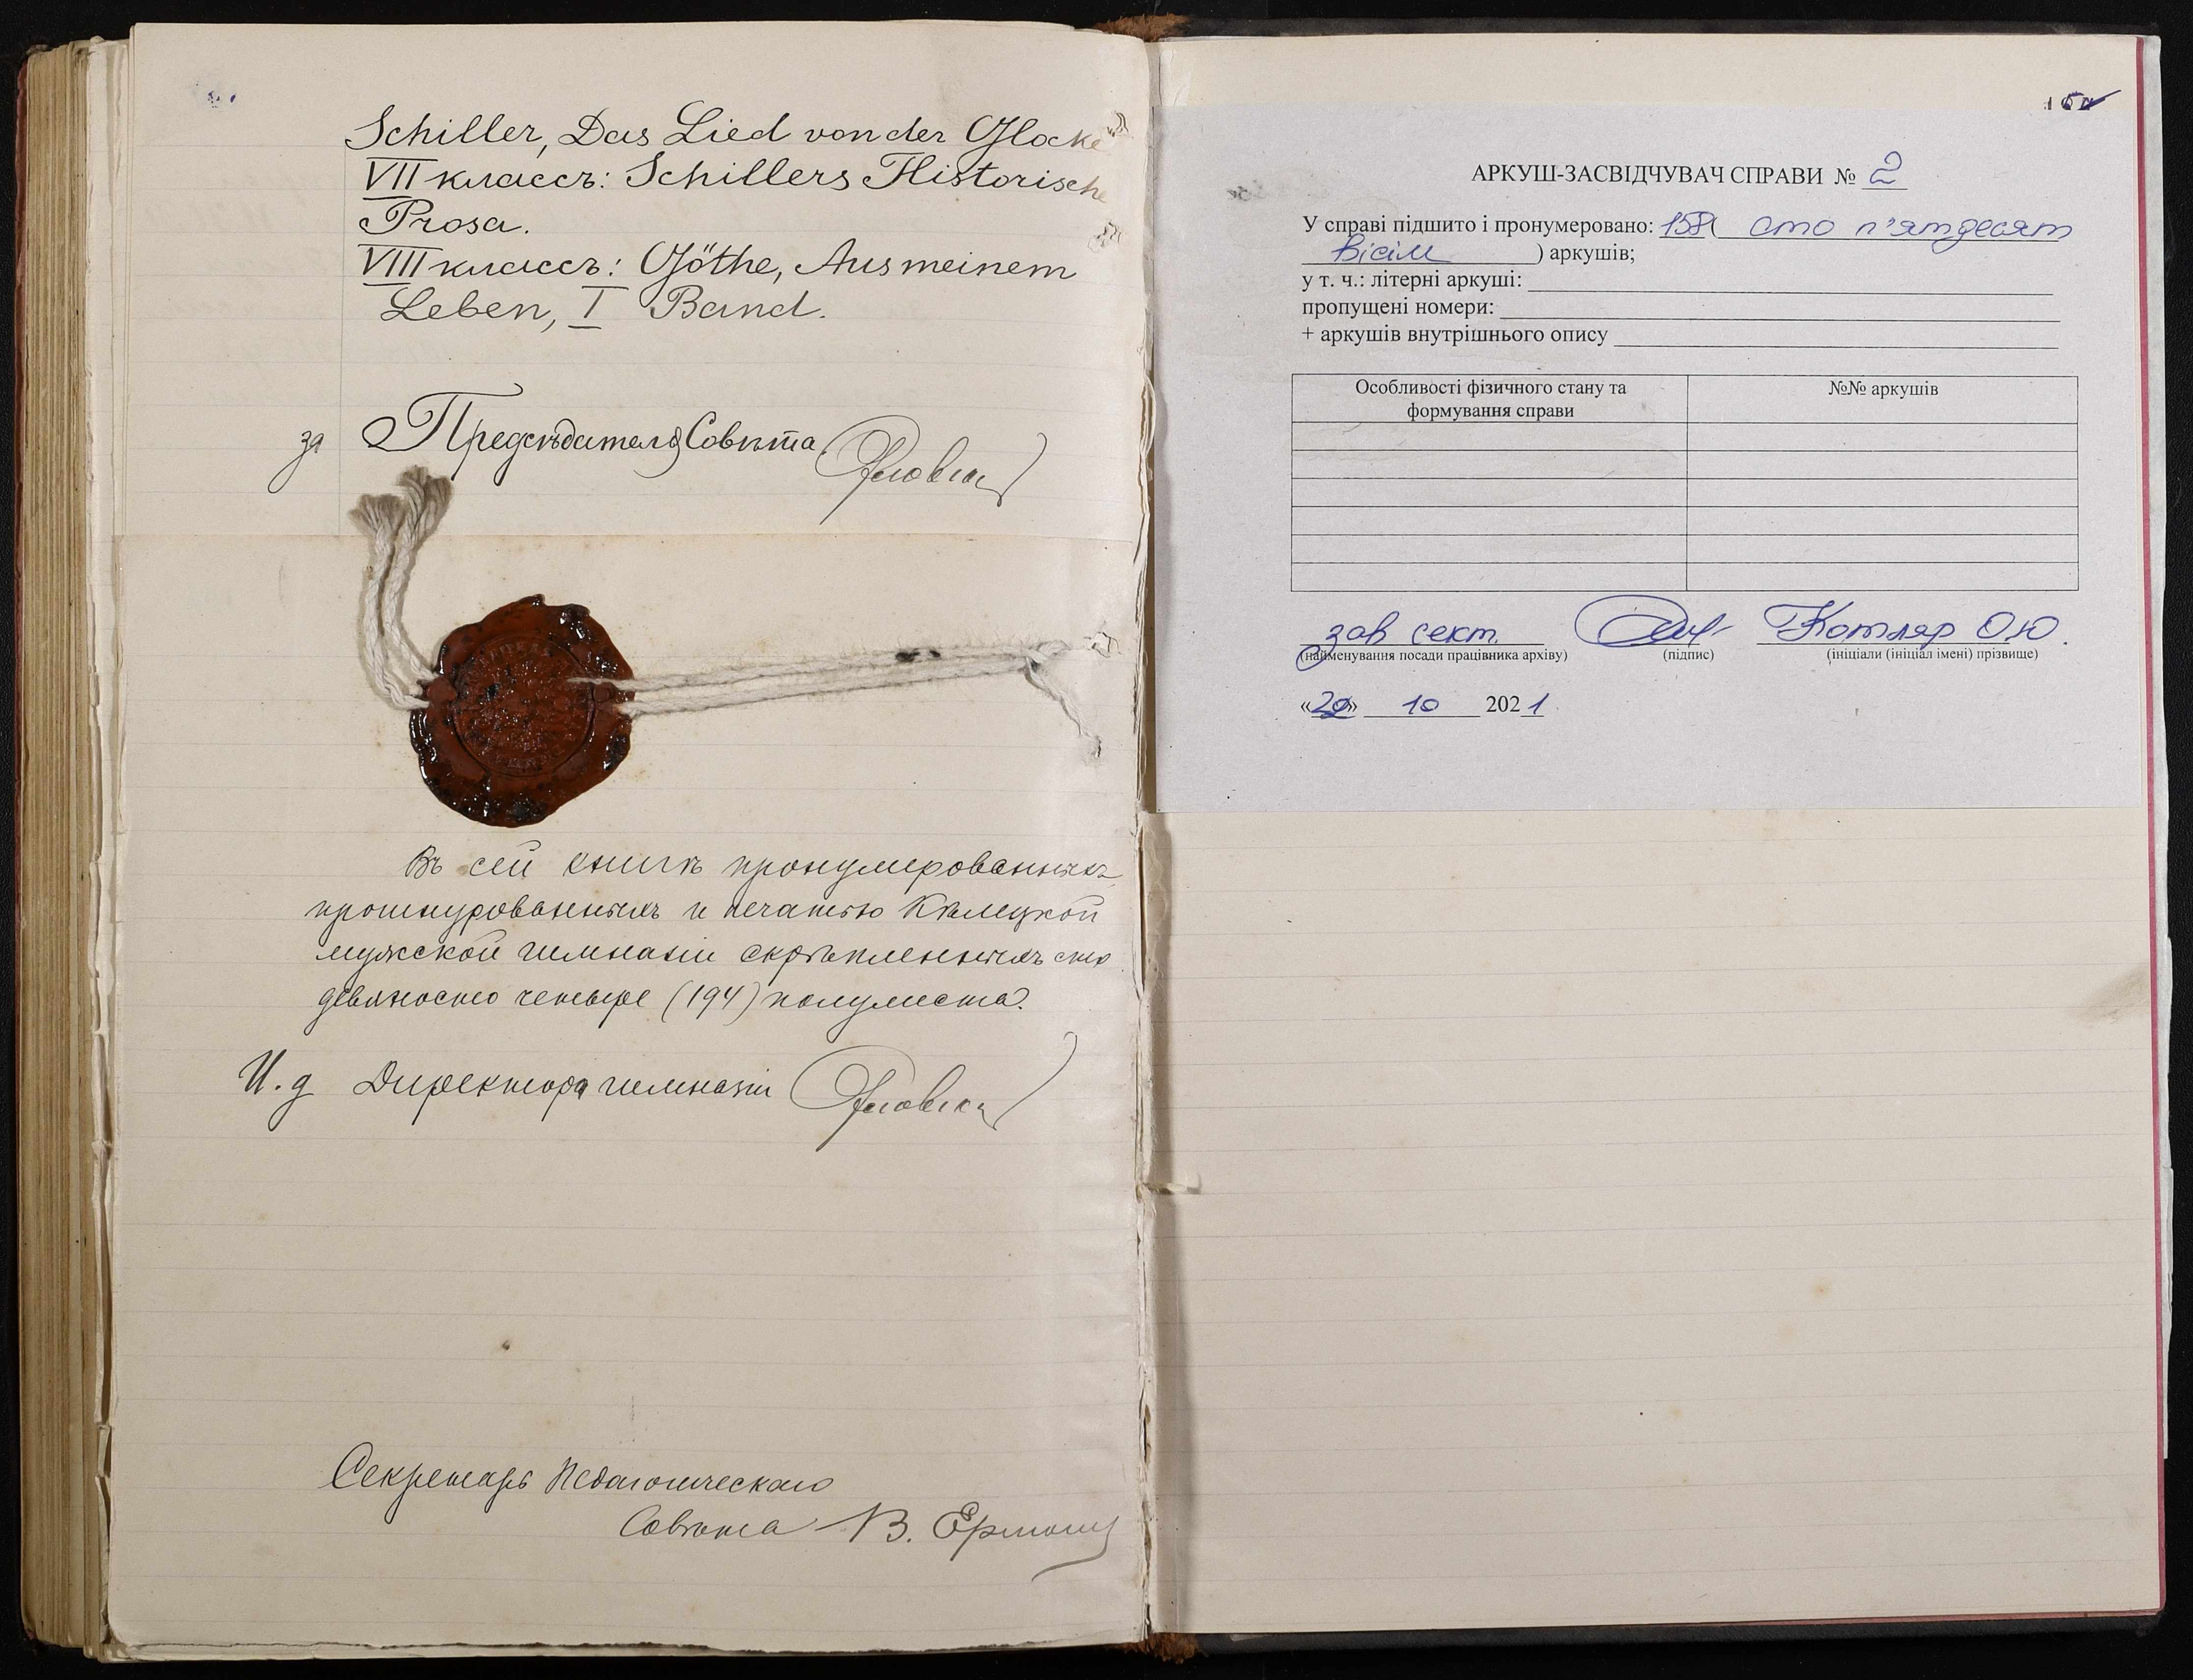 Schiller, Das Lied von der Glocke
VII классъ: Schillers Historische
Prosa.
VIII классъ: Göthe, Aus meinem
Leben, I Band.
за Предсѣдателя Совѣта
Въ сей книгѣ пронумерованныхъ,
прошнурованныхъ и печатью
мужской гимназіи скрѣпленныхъ сто
девяносто четыре (194) полулиста.
И. д Директора гимназіи
Секретарь Педагогическаго
Совѣта В.
АРКУШ-ЗАСВІДЧУВАЧ СПРАВИ № 2
У справі підшито і пронумеровано: 158 ( сто п'ятдесят
вісім ) аркушів;
у т. ч.: літерні аркуші:
пропущені номери:
+ аркушів внутрішнього опису
Особливості фізичного стану та
формування справи
№№ аркушів
зав сект. Котляр О.Ю.
(найменування посади працівника архіву) (підпис) (ініціали (ініціал імені) прізвище)
« » 10 2021